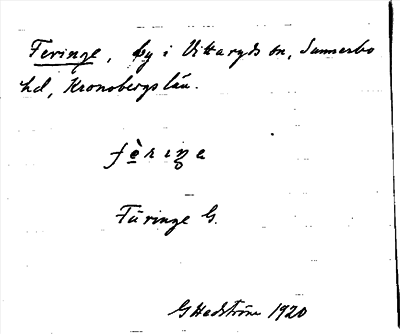 Feringe, by i Vittaryds sn, Sunnerbo
hd, Kronobergs län.
Färinge G.
G Hedström 1920